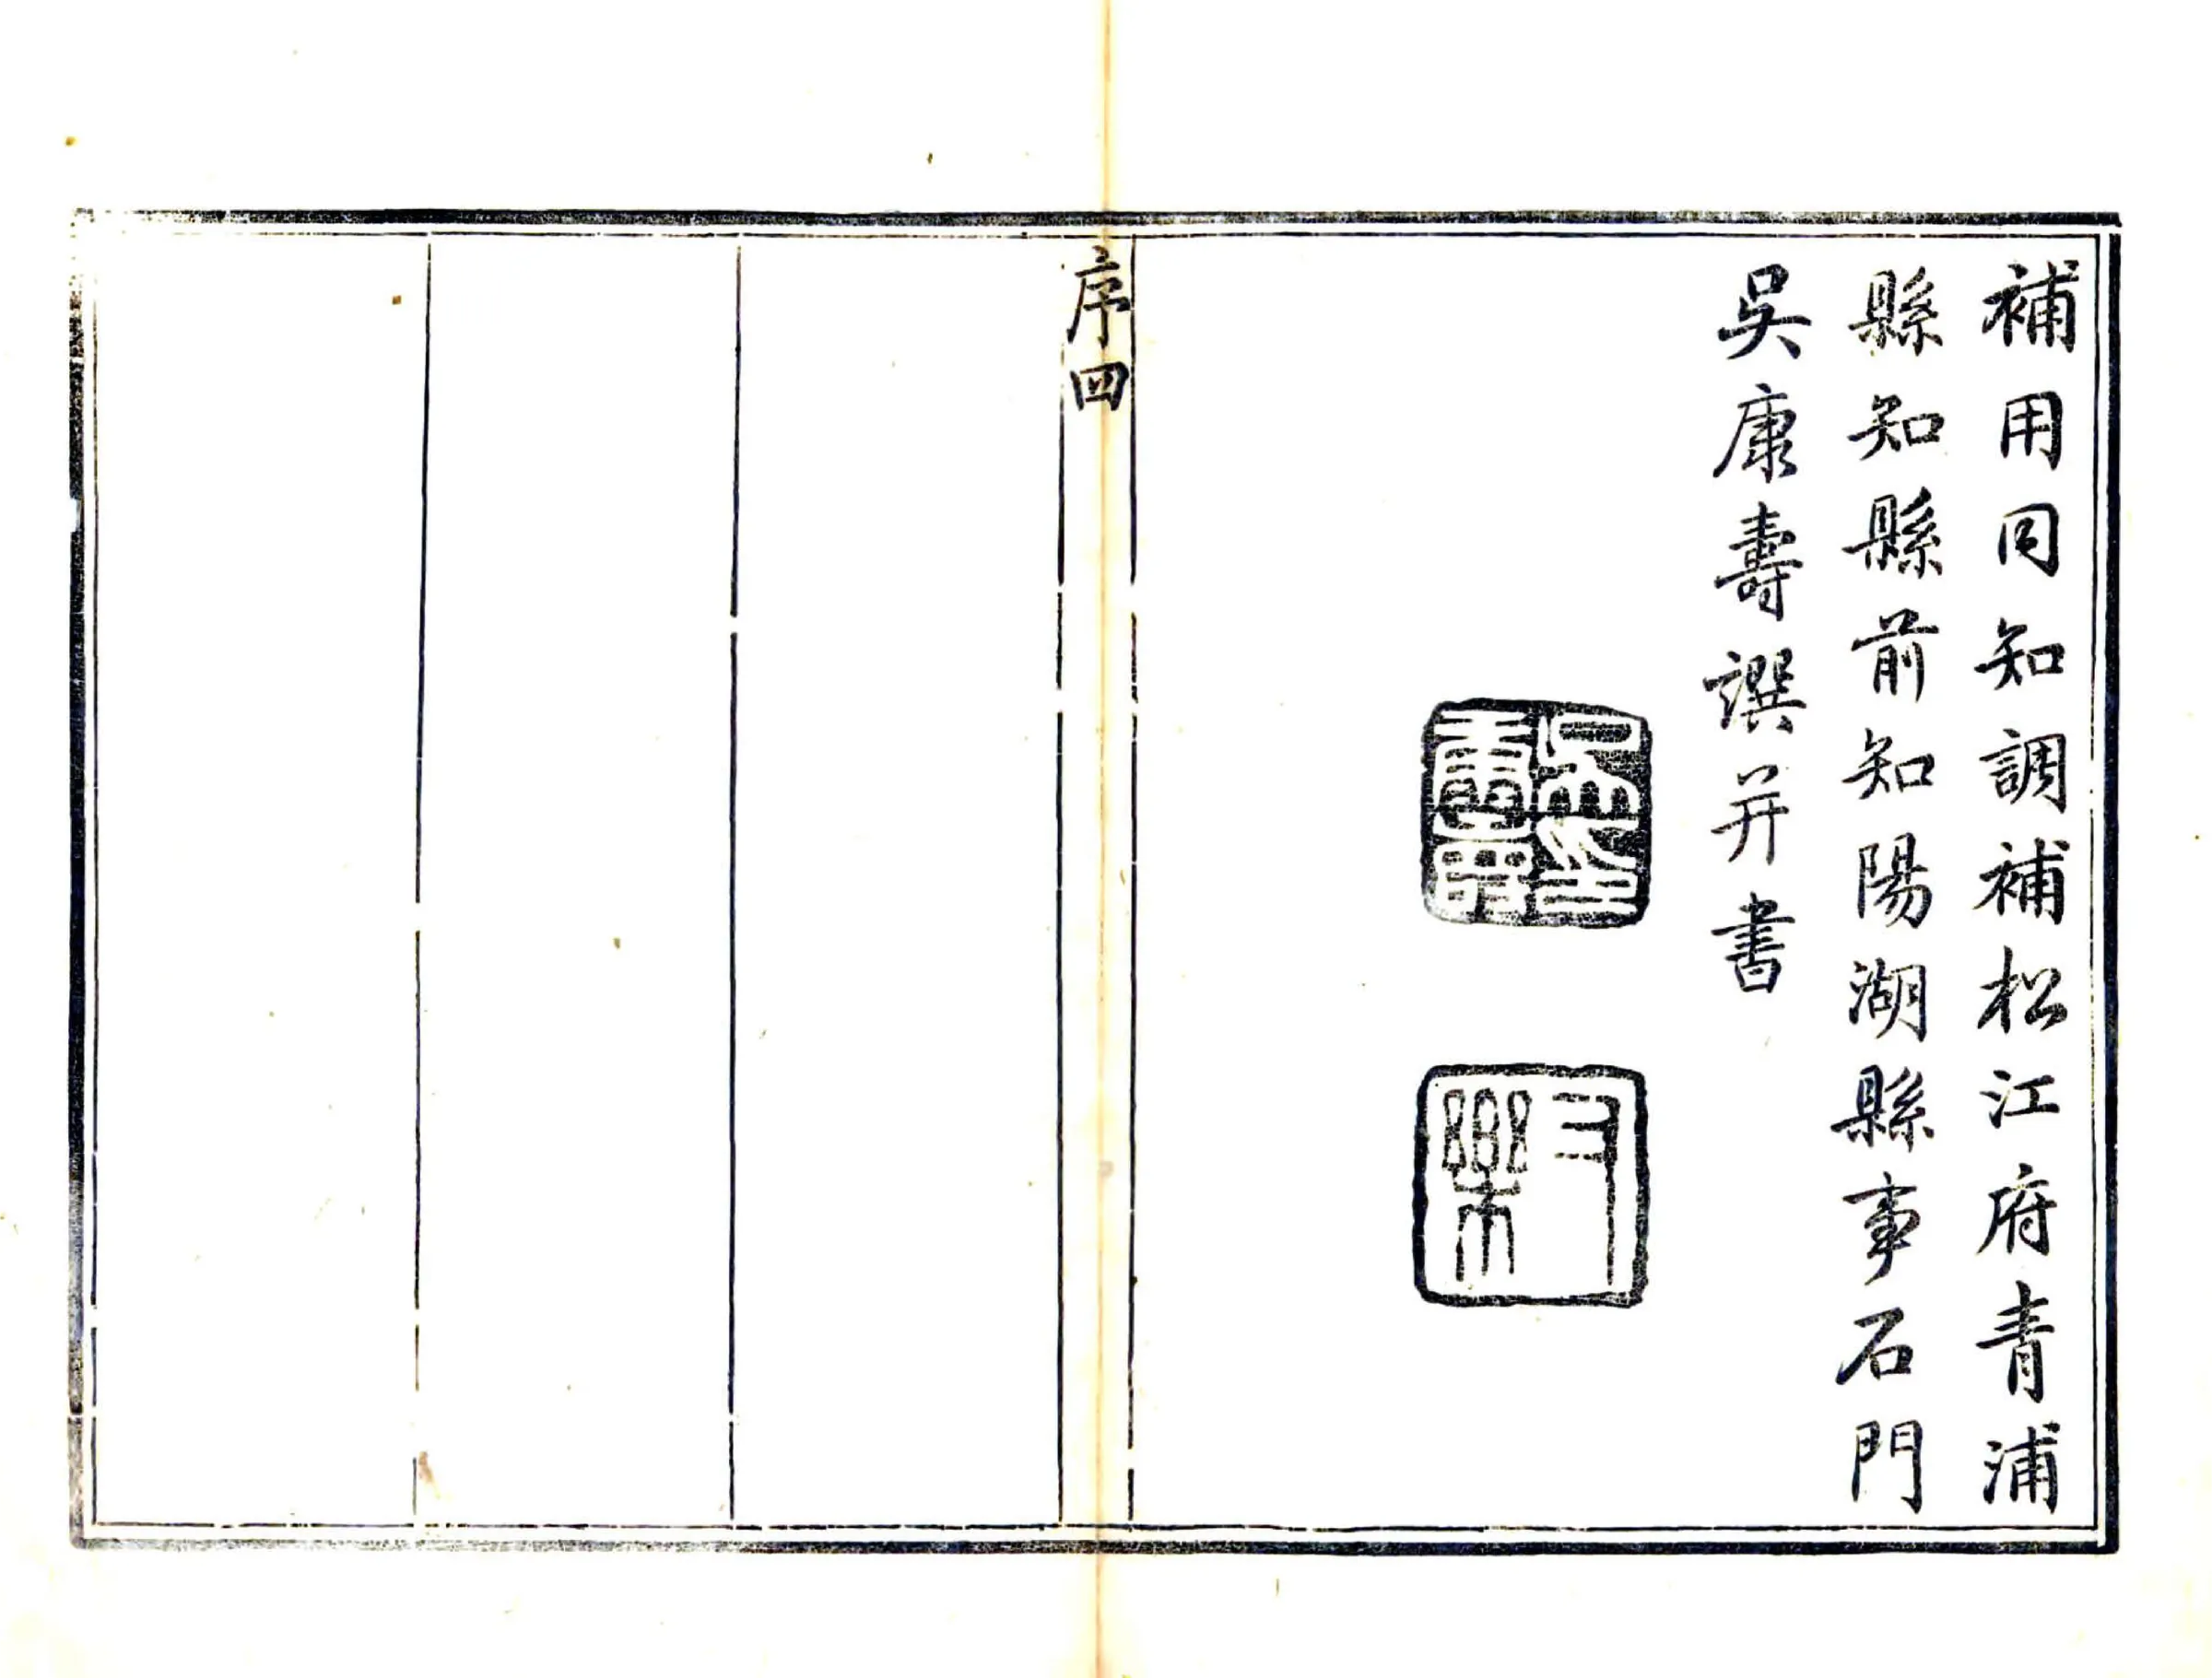 補用同知調補松江府青浦
縣知縣前知陽湖縣事石門
吳康壽譔并書
吳康壽印
又樂
序四